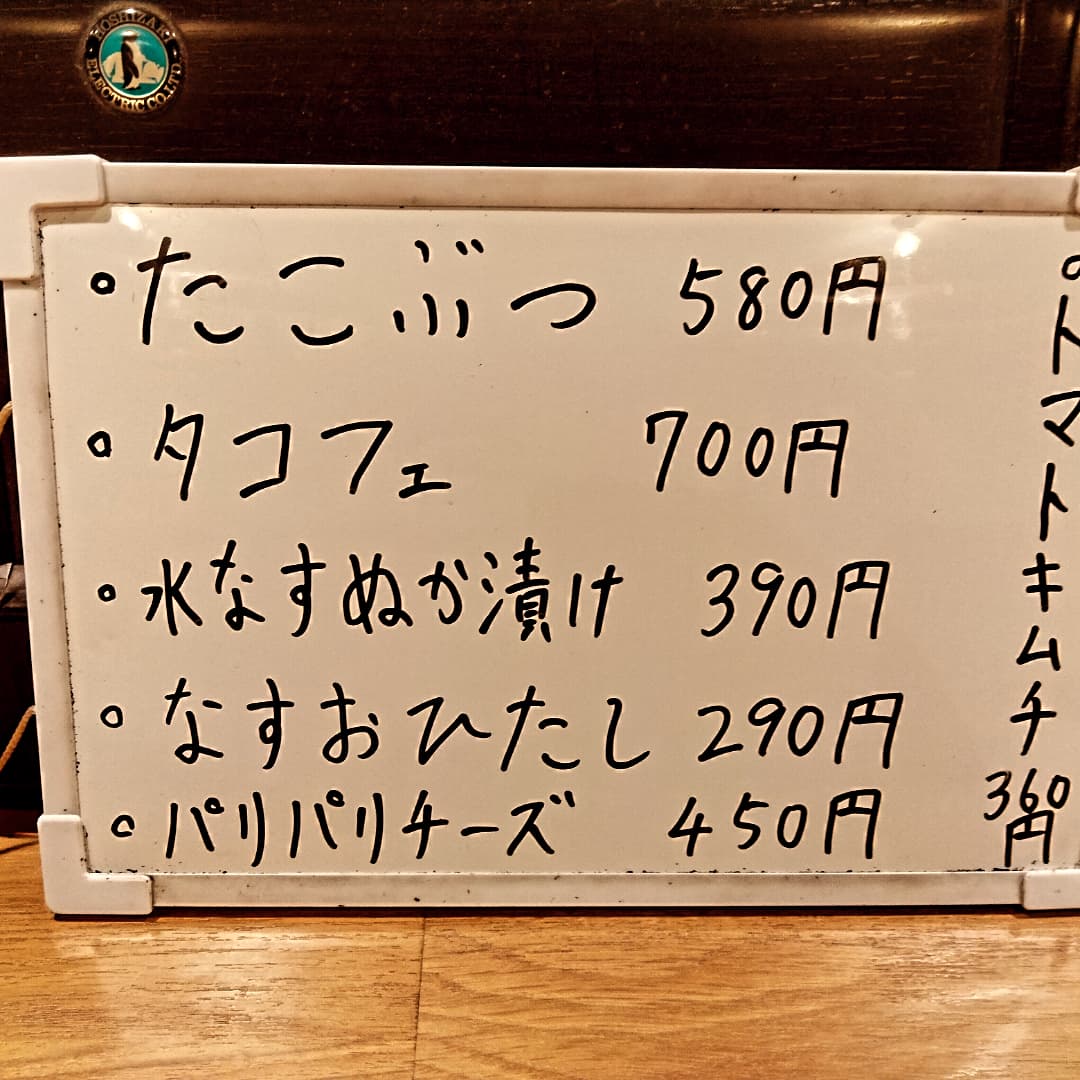 HOSHIZAKI ELECTRIC CO.,LTD.
。たこぶつ 580円
。タコフェ 700円
。水なすぬか漬け 390円
。なすおひたし 290円
。パリパリチーズ 450円
。トマトキムチ
360
円